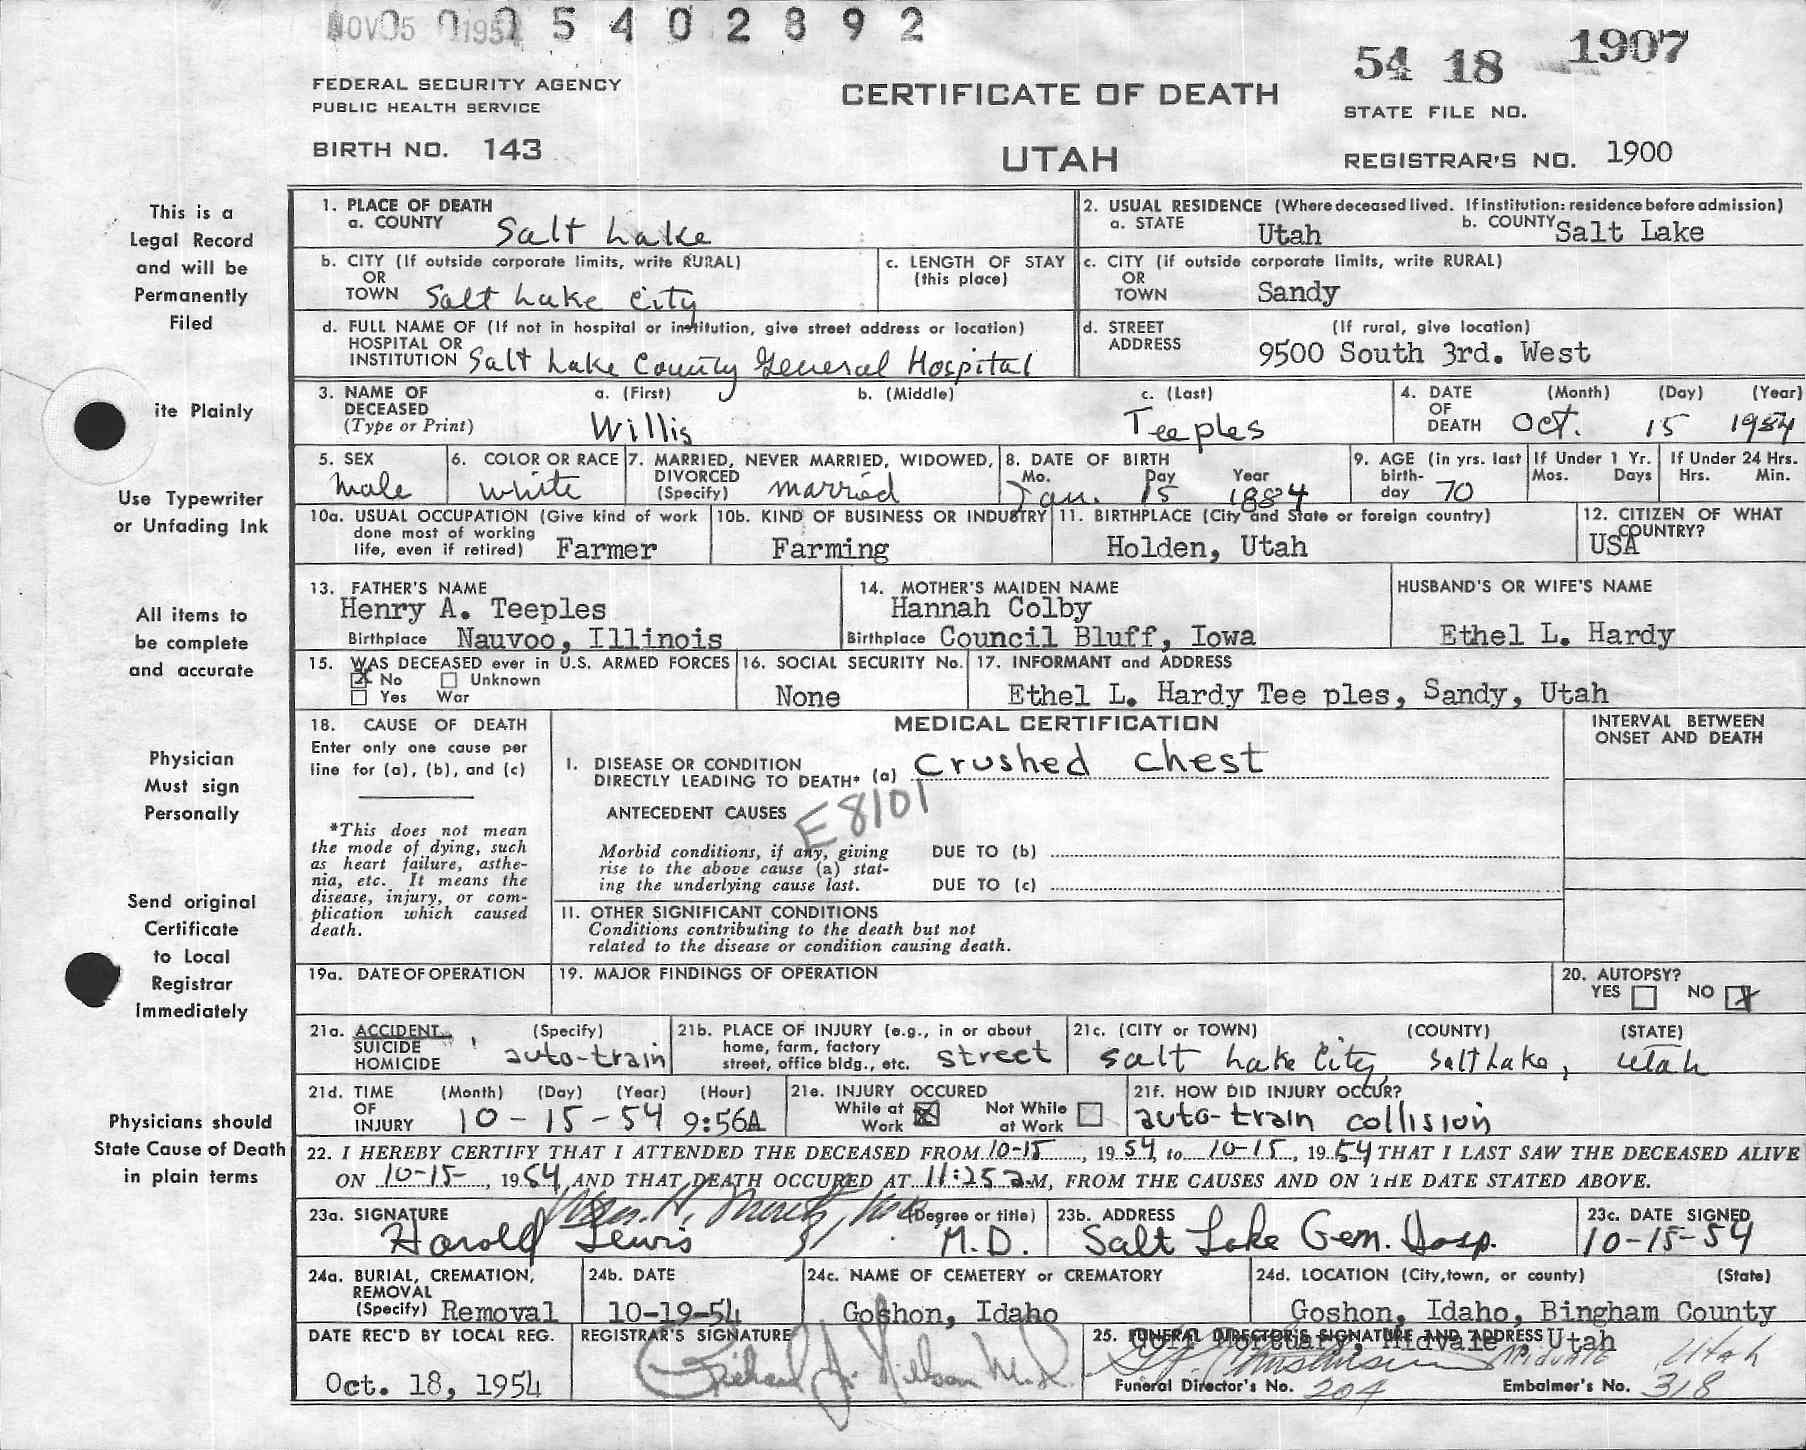 NOV 05 1954 0005402892
54 18 1907
FEDERAL SECURITY AGENCY
PUBLIC HEALTH SERVICE
CERTIFICATE OF DEATH
STATE FILE NO.
BIRTH NO. 143
UTAH
REGISTRAR'S NO. 1900
This is a
Legal Record
and will be
Permanently
Filed
ite Plainly
Use Typewriter
or Unfading Ink
All items to
be complete
and accurate
Physician
Must sign
Personally
Send original
Certificate
to Local
Registrar
immediately
Physicians should
State Cause of Death
in plain terms
1. PLACE OF DEATH
a. COUNTY Salt Lake
2. USUAL RESIDENCE (Where deceased lived. If institution: residence before admission)
a. STATE Utah b. COUNTY Salt Lake
b. CITY (If outside corporate limits, write RURAL)
OR
TOWN Salt Lake City
c. LENGTH OF STAY
(this place)
c. CITY (if outside corporate limits, write RURAL)
OR
TOWN Sandy
d. FULL NAME OF (If not in hospital or institution, give street address or location)
HOSPITAL OR
INSTITUTION Salt Lake County General Hospital
d. STREET (If rural, give location)
ADDRESS 9500 South 3rd. West
3. NAME OF a. (First) b. (Middle) c. (Last)
DECEASED
(Type or Print) Willis Teeples
4. DATE (Month) (Day) (Year)
OF
DEATH Oct. 15 1954
5. SEX
Male
6. COLOR OR RACE
White
7. MARRIED, NEVER MARRIED, WIDOWED,
DIVORCED
(Specify) married
8. DATE OF BIRTH
Mo. Day Year
Jan. 15 1884
9. AGE (in yrs. last
birth-
day 70
If Under 1 Yr.
Mos. Days
If Under 24 Hrs.
Hrs. Min.
10a. USUAL OCCUPATION (Give kind of work
done most of working
life, even if retired) Farmer
10b. KIND OF BUSINESS OR INDUSTRY
Farming
11. BIRTHPLACE (City and State or foreign country)
Holden, Utah
12. CITIZEN OF WHAT
COUNTRY?
USA
13. FATHER'S NAME
Henry A. Teeples
Birthplace Nauvoo, Illinois
14. MOTHER'S MAIDEN NAME
Hannah Colby
Birthplace Council Bluff, Iowa
HUSBAND'S OR WIFE'S NAME
Ethel L. Hardy
15. WAS DECEASED ever in U.S. ARMED FORCES
No Unknown
Yes War
16. SOCIAL SECURITY No.
None
17. INFORMANT and ADDRESS
Ethel L. Hardy Tee ples, Sandy, Utah
18. CAUSE OF DEATH
Enter only one cause per
line for (a), (b), and (c)
*This does not mean
the mode of dying, such
as heart failure, asthe-
nia, etc. It means the
disease, injury, or com-
plication which caused
death.
MEDICAL CERTIFICATION
I. DISEASE OR CONDITION
DIRECTLY LEADING TO DEATH* (a) Crushed Chest
E8101
ANTECEDENT CAUSES
Morbid conditions, if any, giving
rise to the above cause (a) stat-
ing the underlying cause last.
DUE TO (b)
DUE TO (c)
II. OTHER SIGNIFICANT CONDITIONS
Conditions contributing to the death but not
related to the disease or condition causing death.
INTERVAL BETWEEN
ONSET AND DEATH
19a. DATE OF OPERATION
19. MAJOR FINDINGS OF OPERATION
20. AUTOPSY?
YES NO
21a. ACCIDENT (Specify)
SUICIDE
HOMICIDE auto-train
21b. PLACE OF INJURY (e.g., in or about
home, farm, factory
street, office bldg., etc. street
21c. (CITY or TOWN) (COUNTY) (STATE)
Salt Lake City Salt Lake, Utah
21d. TIME (Month) (Day) (Year) (Hour)
OF
INJURY 10-15-54 9:56A
21e. INJURY OCCURED
While at Not While
Work at Work
21f. HOW DID INJURY OCCUR?
auto-train collision
22. I HEREBY CERTIFY THAT I ATTENDED THE DECEASED FROM 10-15, 19 54, to 10-15, 19 54 THAT I LAST SAW THE DECEASED ALIVE
ON 10-15-, 19 54, AND THAT DEATH OCCURED AT 11:25 a.M, FROM THE CAUSES AND ON THE DATE STATED ABOVE.
23a. SIGNATURE (Degree or title)
Harold Lewis M.D.
23b. ADDRESS
Salt Lake Gem. Hosp.
23c. DATE SIGNED
10-15-54
24a. BURIAL, CREMATION,
REMOVAL
(Specify) Removal
24b. DATE
10-19-54
24c. NAME OF CEMETERY or CREMATORY
Goshon, Idaho
24d. LOCATION (City, town, or county) (State)
Goshon, Idaho, Bingham County
DATE REC'D BY LOCAL REG.
Oct. 18, 1954
REGISTRAR'S SIGNATURE
Richard J. Nielson M.D.
25. FUNERAL DIRECTOR'S SIGNATURE AND ADDRESS
Goff Mortuary, Midvale Utah
Midvale, Utah
Funeral Director's No. 204
Embalmer's No. 318